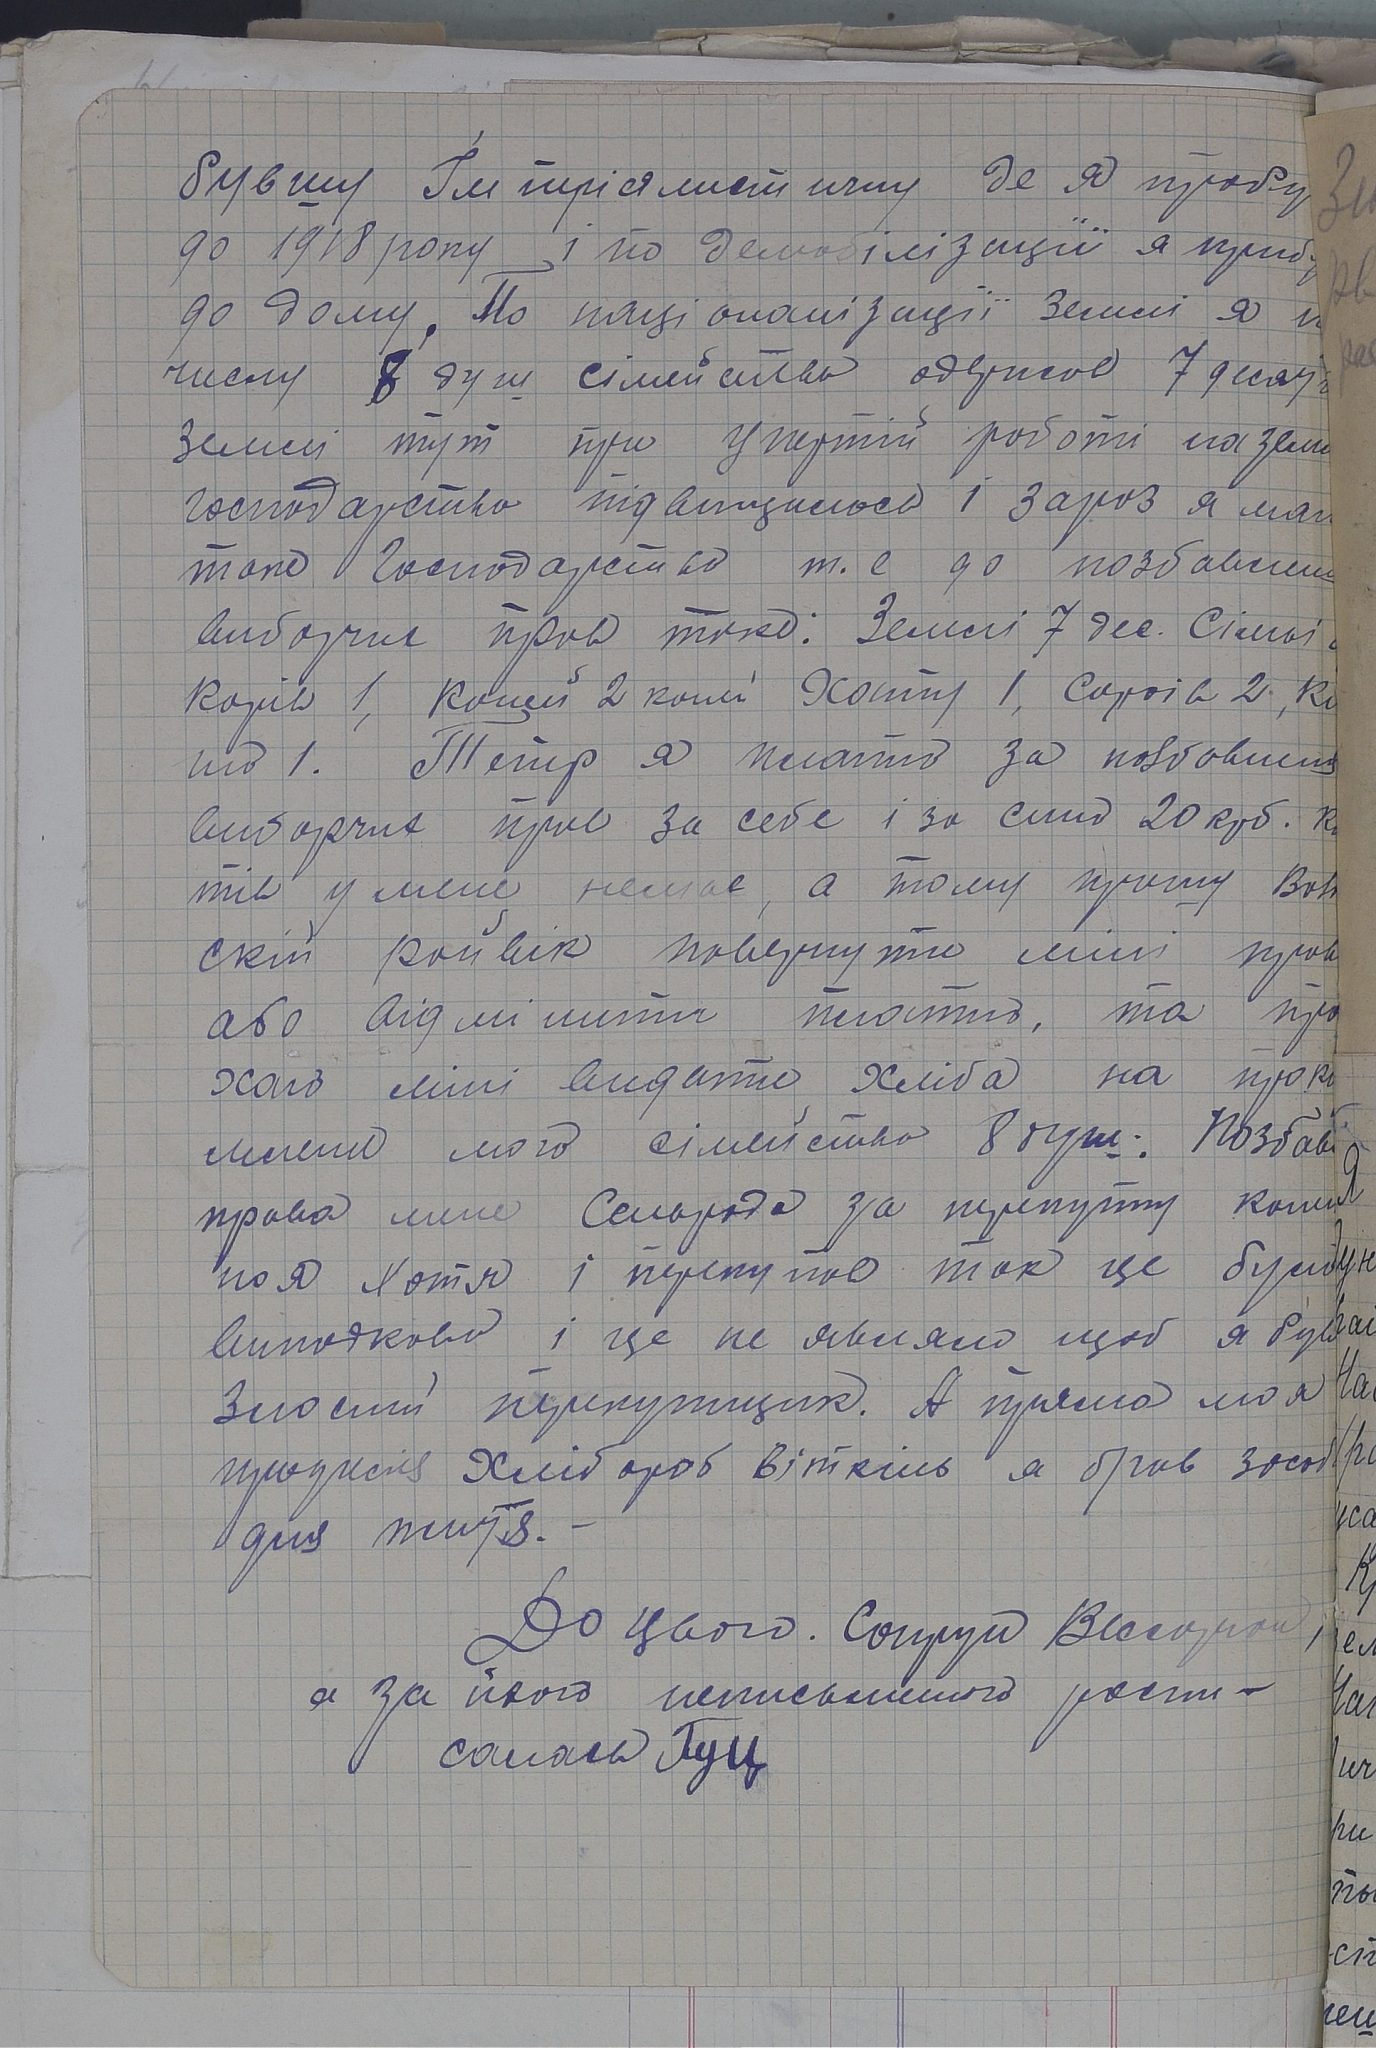 бувшу Імперіялистичну де я пробу
до 1918 року і по демобілізації я прибу
до дому. По націоналізації землі я п
числу 8 душ сімейства одержав 7 десят
землі тут при упертій роботі на земл
господарство підвищилося і зараз я маю
таке господарство т.е до позбавлення
виборчих прав таке: Землі 7 дес. Сімьі
Корів 1, Коней 2 коні Хату 1, Сараїв 2, Кл
ня 1. Тепер я платю за позбавлення
виборчих прав за себе і за сина 20 крб. К
тів у мене немає, а тому прошу Вов
скій райвік повернути міні прав
або відмінити платню, та про
хаю міні видати хліба на проко
млення мого сімейства 8 душ. Позбавл
права мене Сельрада за перекупку коней
но я хотя і перекупав так це було
випадково і це не являло щоб я був
Злосний перекупщик. А пряма моя
професія Хлібороб віткіль я брав засоб
для життя. –
До цього. Супрун
а за його неписьменного роспи-
салась Гуц
Зн
Я